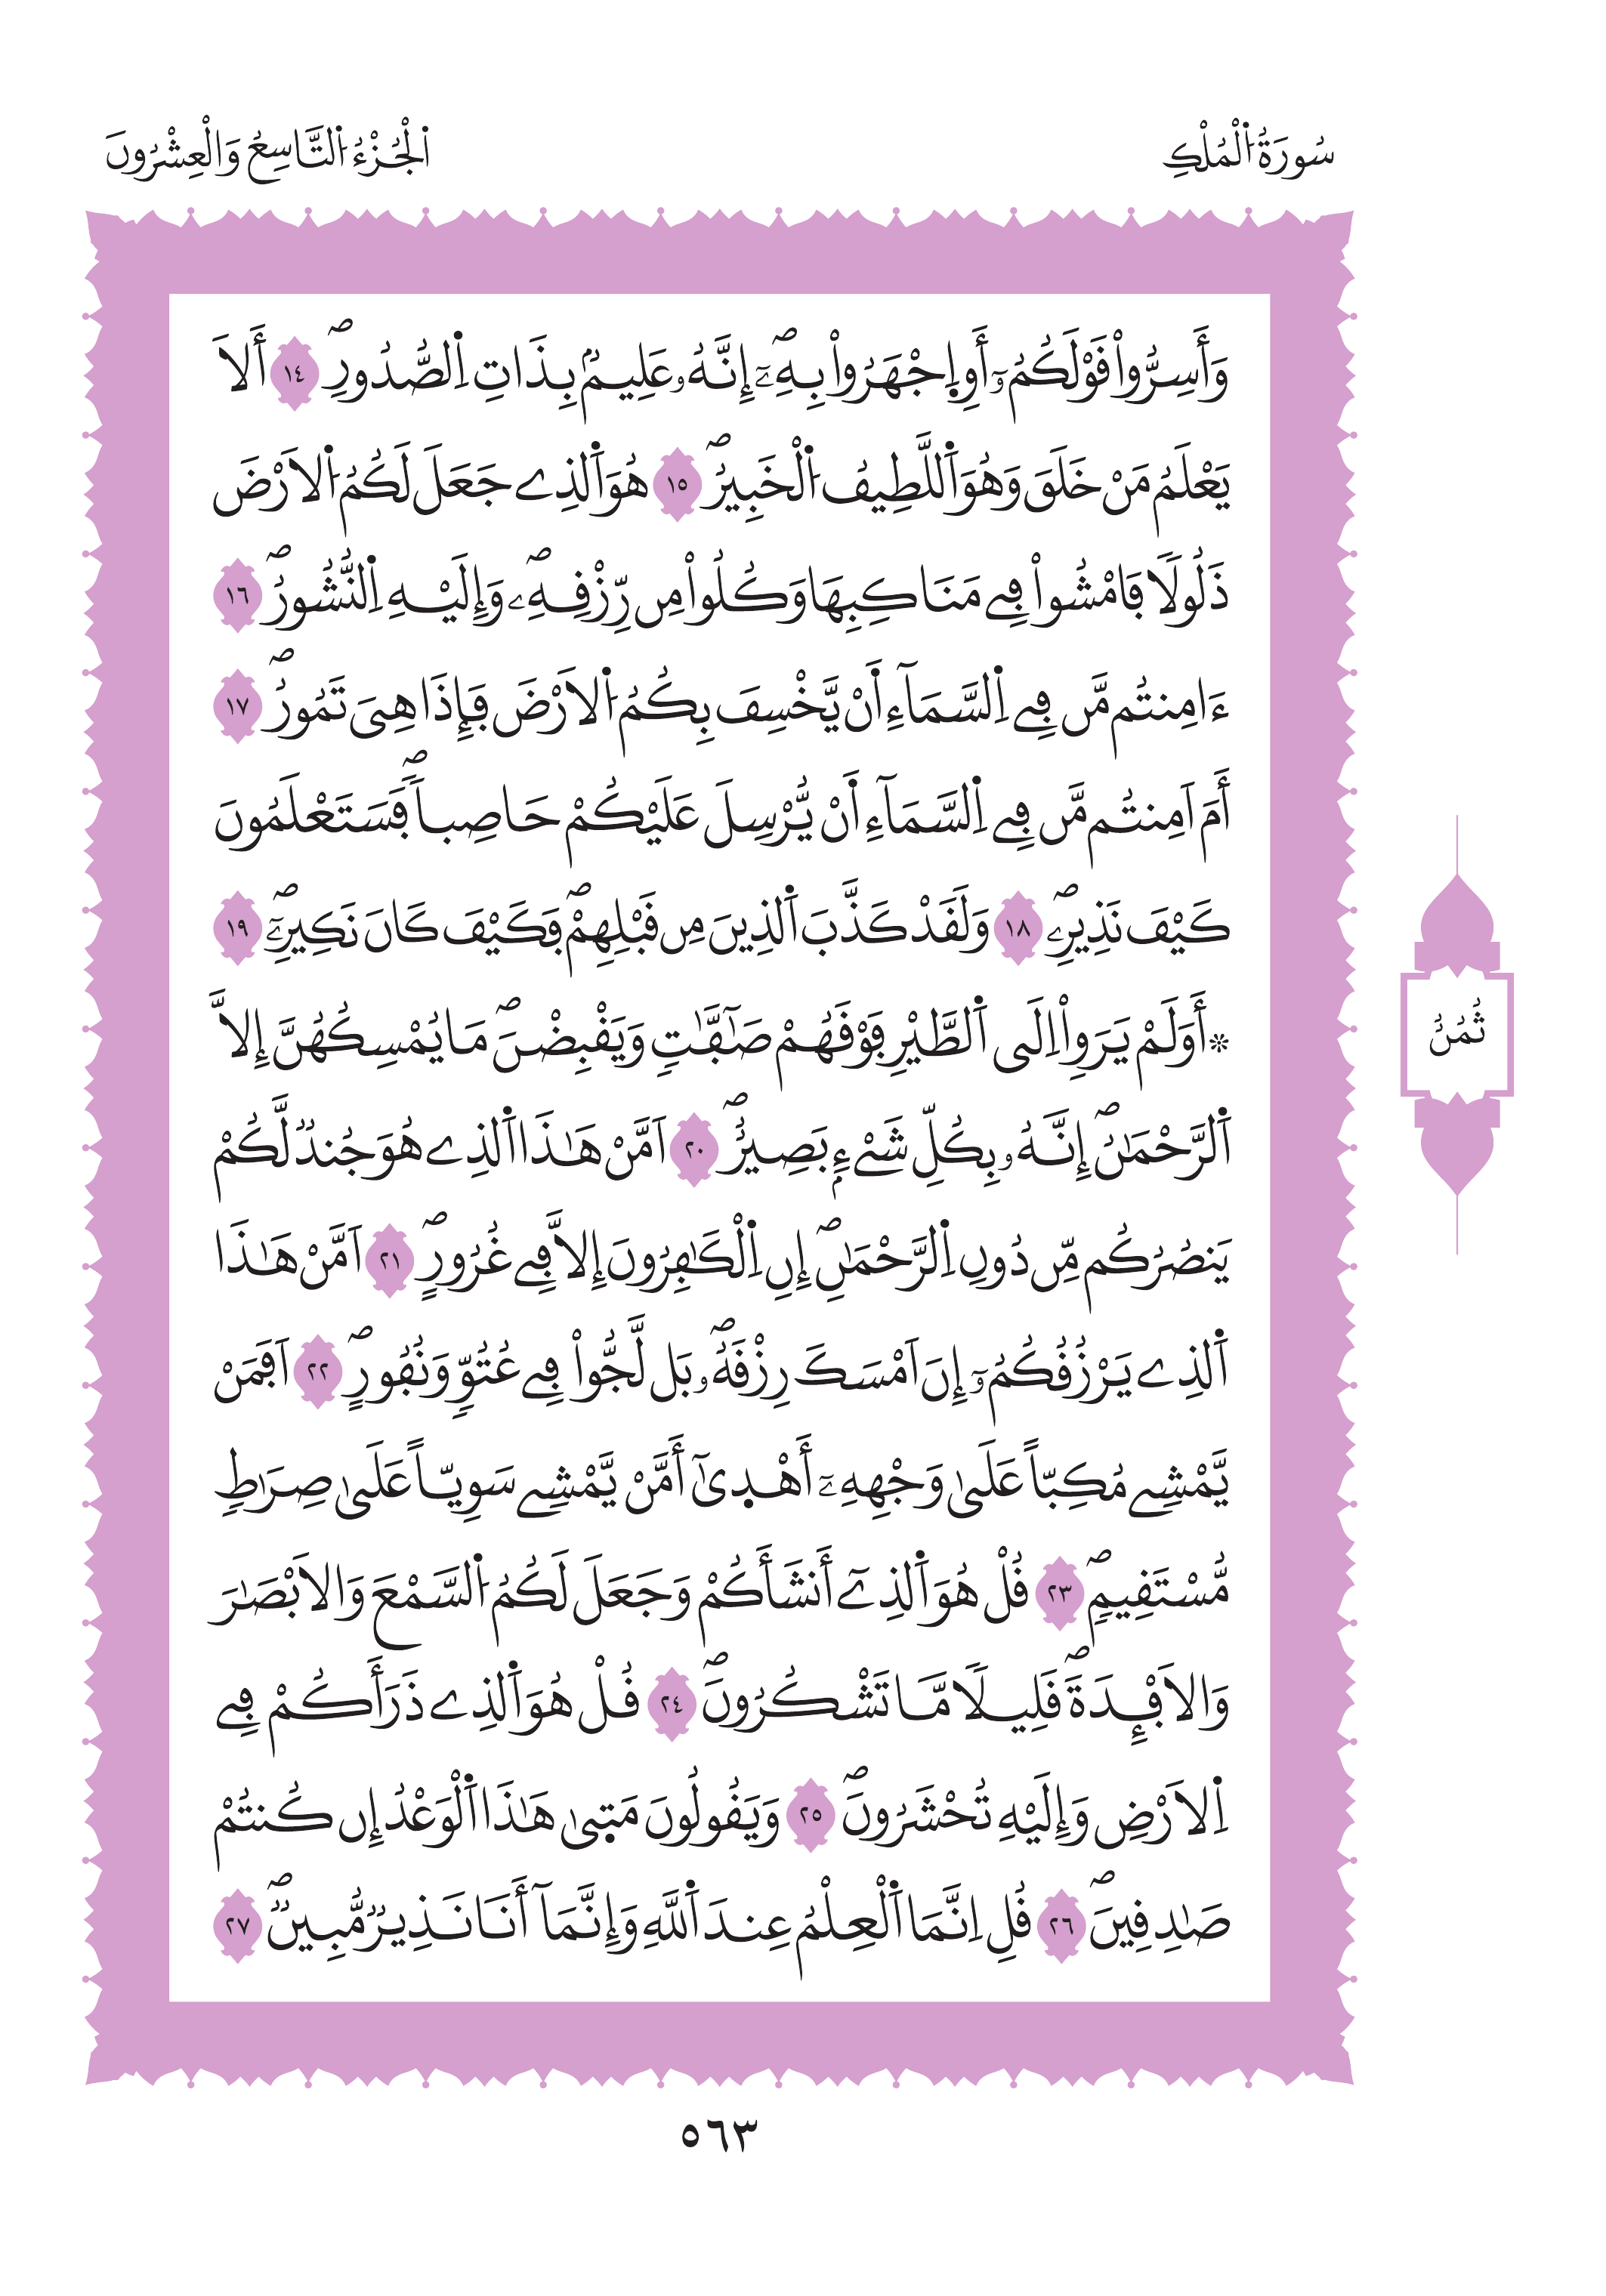 سُورَةُ الْمُلْكِ
اَلْجُزْءُ التَّاسِعُ وَالْعِشْرُونَ
وَأَسِرُّواْ قَوْلَكُمُۥٓ أَوِ اِ۪جْهَرُواْ بِهِۦٓۖ إِنَّهُۥ عَلِيمُۢ بِذَاتِ اِ۬لصُّدُورِۖ ١٤ أَلَا
يَعْلَمُ مَنْ خَلَقَ وَهُوَ اَ۬للَّطِيفُ اُ۬لْخَبِيرُۖ ١٥ هُوَ اَ۬لذِے جَعَلَ لَكُمُ اُ۬لَارْضَ
ذَلُولٗا فَامْشُواْ فِے مَنَاكِبِهَا وَكُلُواْ مِن رِّزْقِهِۦۖ وَإِلَيْهِ اِ۬لنُّشُورُۖ ١٦
ءَامِنتُم مَّن فِے اِ۬لسَّمَآءِ أَنْ يَّخْسِفَ بِكُمُ اُ۬لَارْضَ فَإِذَا هِىَ تَمُورُۖ ١٧
أَمَ اَمِنتُم مَّن فِے اِ۬لسَّمَآءِ أَنْ يُّرْسِلَ عَلَيْكُمْ حَاصِباٗۖ فَسَتَعْلَمُونَ
كَيْفَ نَذِيرِۦۖ ١٨ وَلَقَدْ كَذَّبَ اَ۬لذِينَ مِن قَبْلِهِمْۖ فَكَيْفَ كَانَ نَكِيرِۦٓۖ ١٩
۞أَوَلَمْ يَرَوِاْ اِلَى اَ۬لطَّيْرِ فَوْقَهُمْ صَٰٓفَّٰتٖ وَيَقْبِضْنَۖ مَا يُمْسِكُهُنَّ إِلَّا
اَ۬لرَّحْمَٰنُۖ إِنَّهُۥ بِكُلِّ شَےْءِۢ بَصِيرٌۖ ٢٠ اَمَّنْ هَٰذَا اَ۬لذِے هُوَ جُندٞ لَّكُمْ
يَنصُرُكُم مِّن دُونِ اِ۬لرَّحْمَٰنِۖ إِنِ اِ۬لْكَٰفِرُونَ إِلَّا فِے غُرُورٍۖ ٢١ اَمَّنْ هَٰذَا
اَ۬لذِے يَرْزُقُكُمُۥٓ إِنَ اَمْسَكَ رِزْقَهُۥۖ بَل لَّجُّواْ فِے عُتُوّٖ وَنُفُورٍۖ ٢٢ اَفَمَنْ
يَّمْشِے مُكِبّاً عَلَىٰ وَجْهِهِۦٓ أَهْد۪ىٰٓ أَمَّنْ يَّمْشِے سَوِيّاً عَلَىٰ صِرَٰطٖ
مُّسْتَقِيمٖۖ ٢٣ قُلْ هُوَ اَ۬لذِےٓ أَنشَأَكُمْ وَجَعَلَ لَكُمُ اُ۬لسَّمْعَ وَالَابْصَٰرَ
وَالَافْـِٕدَةَۖ قَلِيلٗا مَّا تَشْكُرُونَۖ ٢٤ قُلْ هُوَ اَ۬لذِے ذَرَأَكُمْ فِے
اِ۬لَارْضِ وَإِلَيْهِ تُحْشَرُونَۖ ٢٥ وَيَقُولُونَ مَت۪ىٰ هَٰذَا اَ۬لْوَعْدُ إِن كُنتُمْ
صَٰدِقِينَۖ ٢٦ قُلِ اِنَّمَا اَ۬لْعِلْمُ عِندَ اَ۬للَّهِ وَإِنَّمَآ أَنَا نَذِيرٞ مُّبِينٞۖ ٢٧
ثُمُنُ
٥٦٣